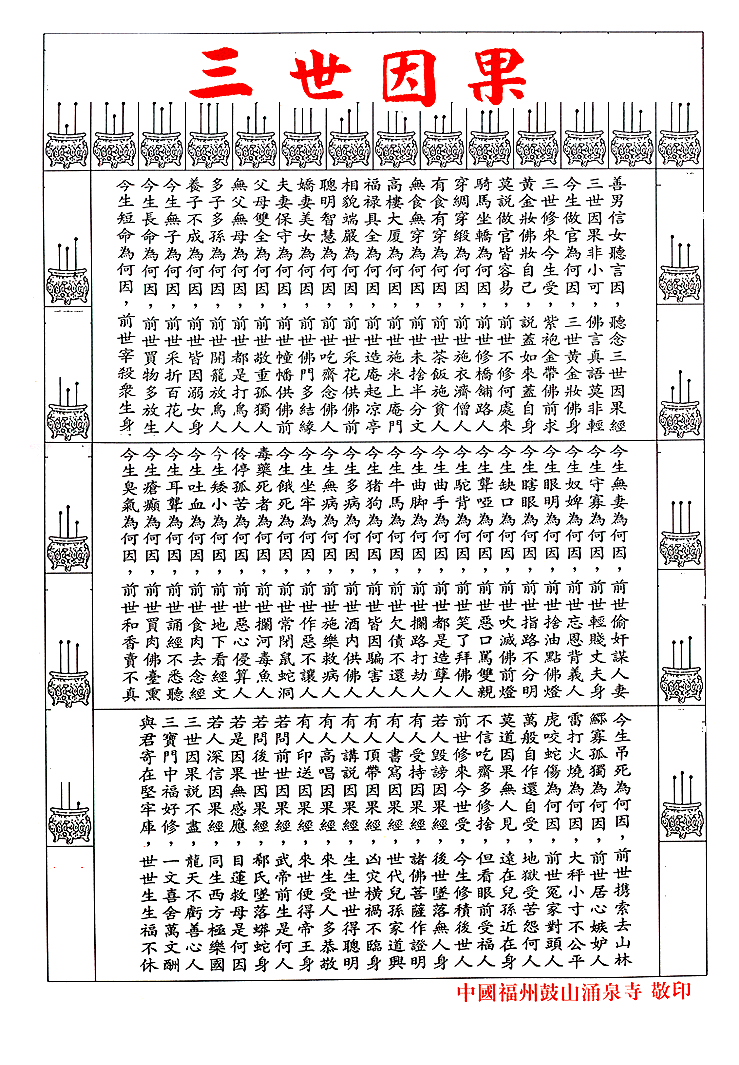 三世因果
善男信女聽言因，聽念三世因果經
三世因果非小可，佛言真語莫非輕
今生做官為何因，三世黃金妝佛身
三世修來今生受，紫袍金帶佛前求
黃金妝佛妝自己，說蓋如來蓋自身
莫說做官皆容易，前世不修何處來
騎馬坐轎為何因，前世修橋舖路人
穿綢穿緞為何因，前世施衣濟僧人
有食有穿為何因，前世茶飯施貧人
無食無穿為何因，前世未捨半分文
高樓大厦為何因，前世施米上庵門
福祿具全為何因，前世造庵起凉亭
相貌端嚴為何因，前世采花供佛前
聰明智慧為何因，前世吃齋念佛人
嬌妻美女為何因，前世佛門多結緣
夫妻保守為何因，前世幢幡供佛前
父母雙全為何因，前世敬重孤獨人
無父無母為何因，前世都是打鳥人
多子多孫為何因，前世開籠放鳥人
養子不成為何因，前世皆因溺女身
今生無子為何因，前世采折百花人
今生長命為何因，前世買物多放生
今生短命為何因，前世宰殺衆生身
今生無妻為何因，前世偷奸謀人妻
今生守寡為何因，前世輕賤丈夫身
今生奴婢為何因，前世忘恩背義人
今生眼明為何因，前世捨油點佛燈
今生瞎眼為何因，前世指路不分明
今生缺口為何因，前世吹滅佛前燈
今生聾啞為何因，前世惡口罵雙親
今生駝背為何因，前世笑了拜佛人
今生曲手為何因，前世都是造孽人
今生曲脚為何因，前世攔路打劫人
今生牛馬為何因，前世欠債不還人
今生猪狗為何因，前世皆因騙害人
今生多病為何因，前世酒内供佛人
今生無病為何因，前世施樂救病人
今生坐牢為何因，前世作惡不讓人
今生餓死為何因，前世常閉鼠蛇洞
毒藥死者為何因，前世攔河毒魚人
伶停孤苦為何因，前世惡心侵算人
今生矮小為何因，前世地下看經文
今生吐血為何因，前世食肉去念經
今生耳聾為何因，前世誦經不悉聽
今生瘡癲為何因，前世買肉佛臺熏
今生臭氣為何因，前世和香賣不真
今生吊死為何因，前世携索去山林
鰥寡孤獨為何因，前世居心嫉妒人
雷打火燒為何因，大秤小寸不公平
虎咬蛇傷為何因，前世冤家對頭人
萬般自作還自受，地獄受苦怨何人
莫道因果無人見，遠在兒孫近在身
不信吃齋多修捨，但看眼前受福人
前世修來今世受，今生修積後世人
若人毀謗因果經，後世墜落無人身
有人受持因果經，諸佛菩薩作證明
有人書寫因果經，世代兒孫家道興
有人頂帶因果經，凶灾橫禍不臨身
有人講説因果經，生生世世得聰明
有人高唱因果經，來生受人多恭敬
有人印送因果經，來世便得帝王身
若問前世因果經，武帝前生是何人
若問後世因果經，郗氏墜落蟒蛇身
若是因果無感應，目蓮救母是何因
若人深信因果經，同生西方極樂國
三世因果説不盡，龍天不虧善心人
三寶門中福好修，一文喜舍萬文酬
與君寄在堅牢庫，世世生生福不休
中國福州鼓山涌泉寺 敬印